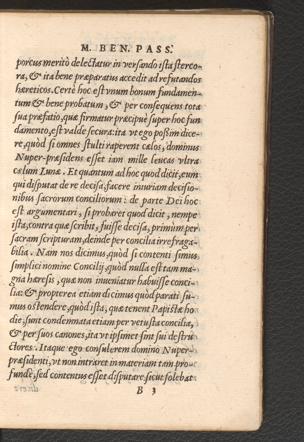 M. BEN. PASS.
porcus meritò delectatur in versando ista sterco-
ra, & ita bene præparatus accedit ad refutandos
hæreticos. Certè hoc est vnum bonum fundamen-
tum & bene probatum, & per consequens tota
sua præfatio, quæ firmatur præcipuè super hoc fun
damento, est valde secura: ita vt ego possim dice-
re, quòd si omnes stulti raperent cælos, dominus
Nuper-præsidens esset iam mille leucas vltra
cælum Lunæ. Et quantum ad hoc quod dicit, eum
qui disputat de re decisa, facere iniuriam decisio-
nibus sacrorum conciliorum: de parte Dei hoc
est argumentari, si probaret quod dicit, nempe
ista, contra quæ scribit, fuisse decisa, primùm per
sacram scripturam, deinde per concilia irrefraga-
bilia. Nam nos dicimus, quòd si contenti simus
simplici nomine Concilij, quòd nulla est tam ma-
gna hæresis, quæ non inueniatur habuisse conci-
lia: & propterea etiam dicimus quòd parati su-
mus ostendere, quòd ista, quæ tenent Papistæ ho
die, sunt condemnata etiam per vetusta concilia,
& per suos canones, ita vt ipsimet sint sui destru-
ctores. Itaque ego consulerem domino Nuper-
præsidenti, vt non intraret in materiam tam pro-
fundè, sed contentus esset disputare sicut solebat
B 3